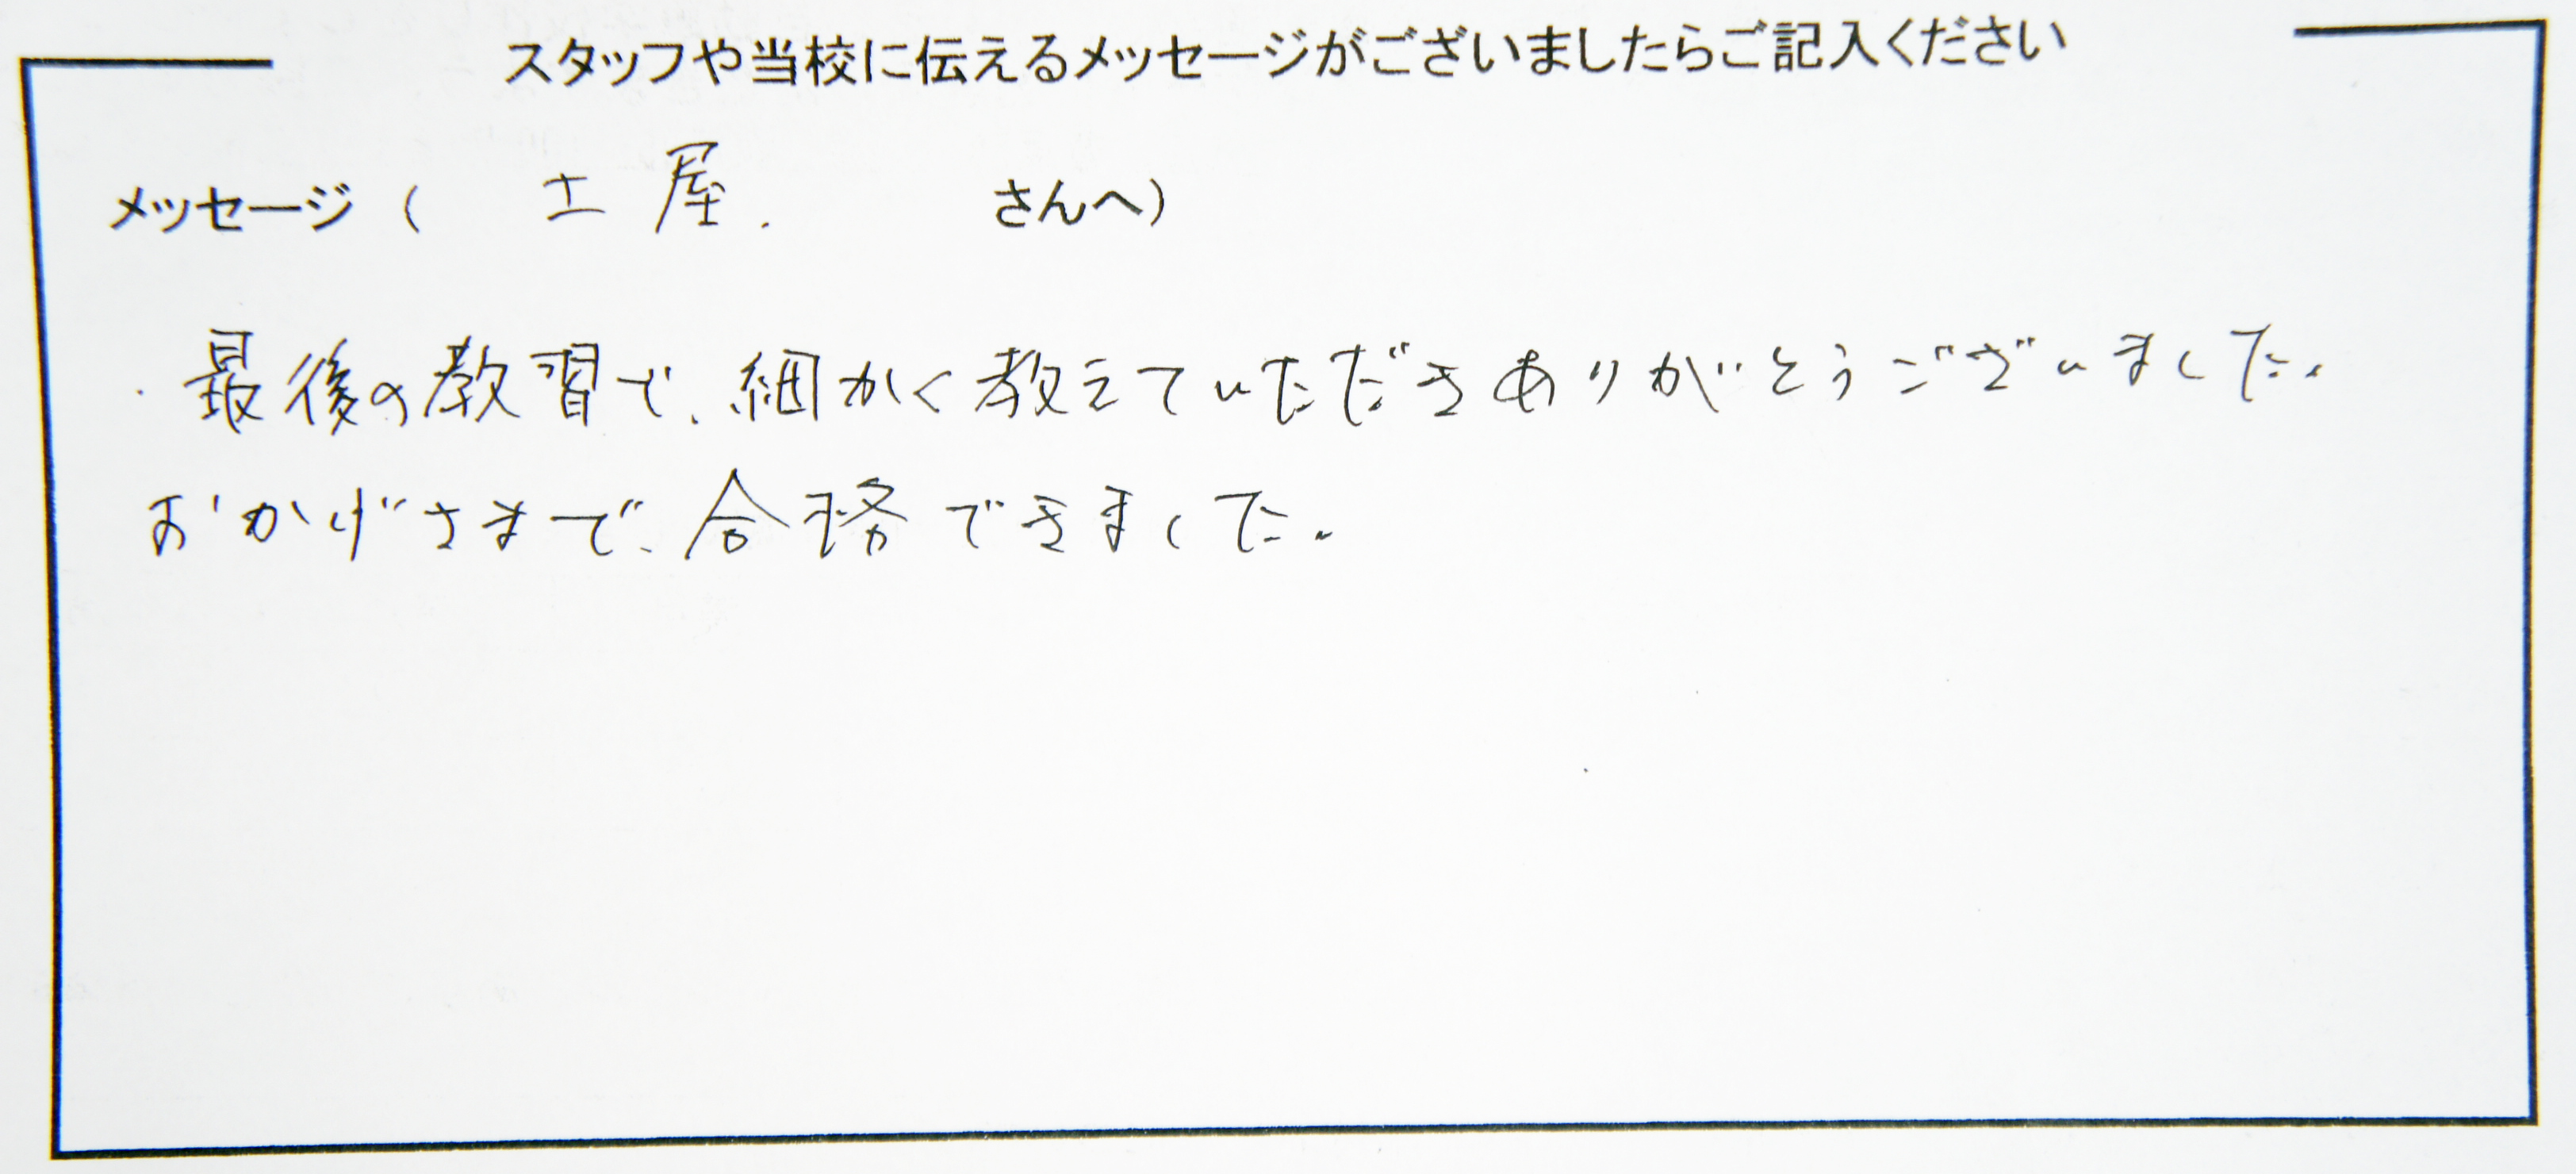 スタッフや当校に伝えるメッセージがございましたらご記入ください
メッセージ ( 土屋. さんへ)
・最後の教習で、細かく教えていただきありがとうございました。
おかげさまで、合格できました。